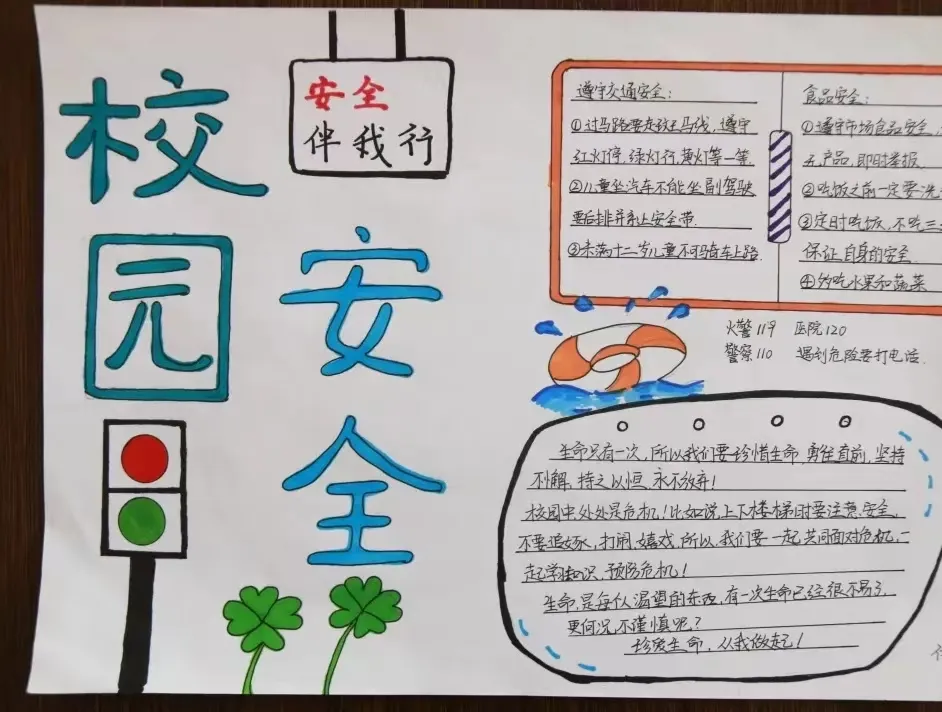 校
园
安
全
安全
伴我行
遵守交通安全:
①过马路要走斑马线,遵守
红灯停,绿灯行,黄灯等一等.
②儿童坐汽车不能坐副驾驶
要后排并系上安全带.
③未满十二岁儿童不可骑车上路.
食品安全:
①遵守市场食品安全,
产品,即时举报.
②吃饭之前一定要洗
③定时吃饭,不吃三
保证自身的安全.
④多吃水果和蔬菜
火警119 医院120
警察110 遇到危险要打电话.
生命只有一次,所以我们要珍惜生命,勇往直前,坚持
不懈,持之以恒,永不放弃!
校园中处处是危机!比如说上下楼梯时要注意安全,
不要追逐,打闹,嬉戏,所以,我们要一起共同面对危机,一
起学习知识,预防危机!
生命,是每个人渴望的东西,有一次生命已经很不易了,
更何况,不谨慎呢?
珍爱生命,从我做起!